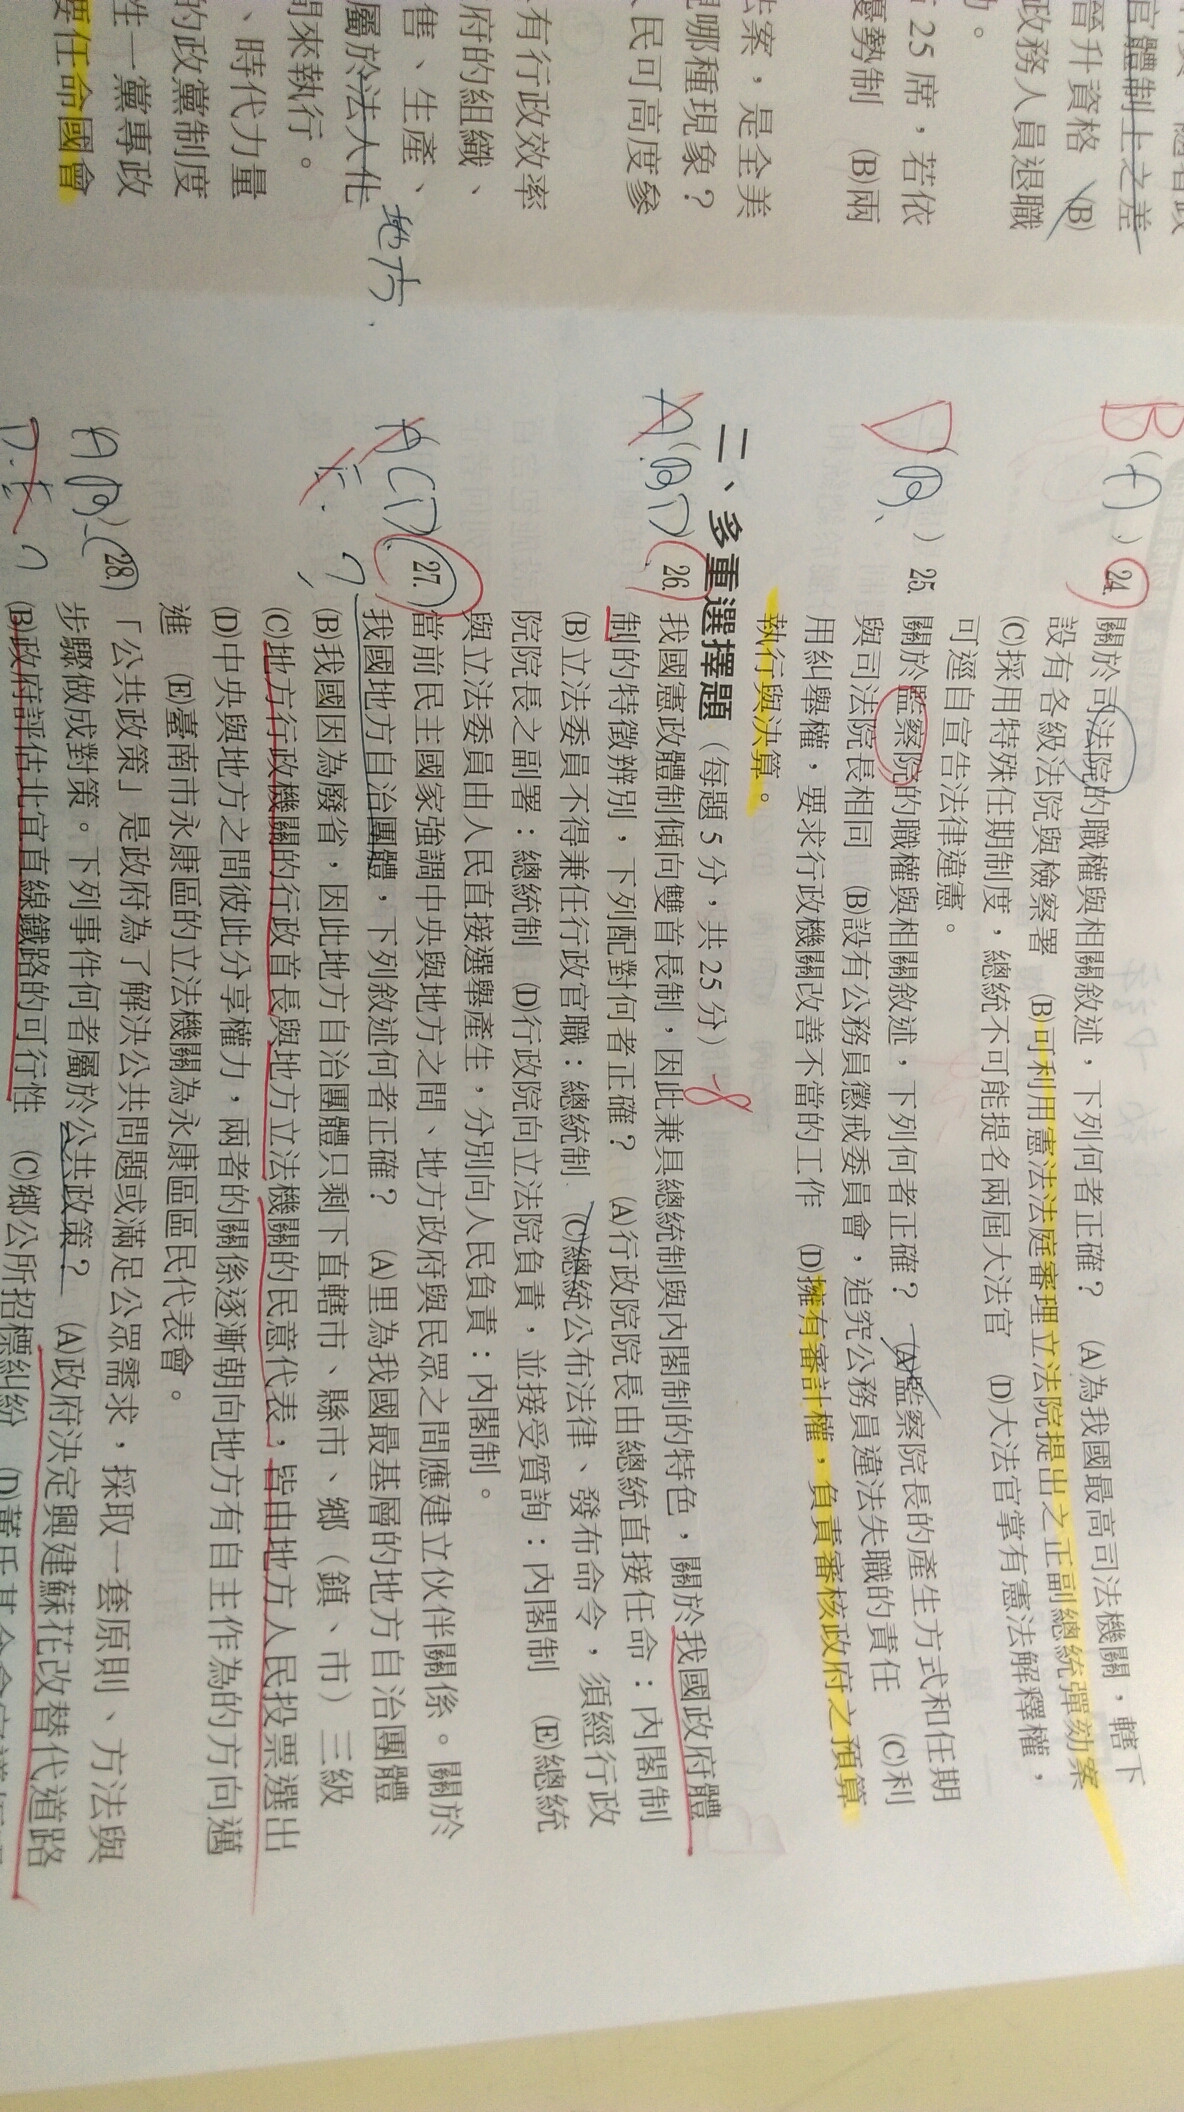 官體制上之差
晉升資格 (B)
政務人員退職
25 席，若依
優勢制 (B)兩
法案，是全美
現哪種現象？
民可高度參
有行政效率
府的組織、
售、生產、
屬於法人化
地方
間來執行。
、時代力量
的政黨制度
生一黨專政
要任命國會
B ( ) 24. 關於司法院的職權與相關敘述，下列何者正確？ (A)為我國最高司法機關，轄下
設有各級法院與檢察署 (B)可利用憲法法庭審理立法院提出之正副總統彈劾案
(C)採用特殊任期制度，總統不可能提名兩屆大法官 (D)大法官掌有憲法解釋權，
可逕自宣告法律違憲。
D (B、 ) 25. 關於監察院的職權與相關敘述，下列何者正確？ (A)監察院長的產生方式和任期
與司法院長相同 (B)設有公務員懲戒委員會，追究公務員違法失職的責任 (C)利
用糾舉權，要求行政機關改善不當的工作 (D)擁有審計權，負責審核政府之預算
執行與決算。
二、多重選擇題（每題 5 分，共 25 分） -8
A(BD) 26. 我國憲政體制傾向雙首長制，因此兼具總統制與內閣制的特色，關於我國政府體
制的特徵辨別，下列配對何者正確？ (A)行政院院長由總統直接任命：內閣制
(B)立法委員不得兼任行政官職：總統制 (C)總統公布法律、發布命令，須經行政
院院長之副署：總統制 (D)行政院向立法院負責，並接受質詢：內閣制 (E)總統
與立法委員由人民直接選舉產生，分別向人民負責：內閣制。
A(CD) 27. 當前民主國家強調中央與地方之間、地方政府與民眾之間應建立伙伴關係。關於
E. ? 我國地方自治團體，下列敘述何者正確？ (A)里為我國最基層的地方自治團體
(B)我國因為廢省，因此地方自治團體只剩下直轄市、縣市、鄉（鎮、市）三級
(C)地方行政機關的行政首長與地方立法機關的民意代表，皆由地方人民投票選出
(D)中央與地方之間彼此分享權力，兩者的關係逐漸朝向地方有自主作為的方向邁
進 (E)臺南市永康區的立法機關為永康區區民代表會。
AB ( 28.) 「公共政策」是政府為了解決公共問題或滿足公眾需求，採取一套原則、方法與
D.E ? 步驟做成對策。下列事件何者屬於公共政策？ (A)政府決定興建蘇花改替代道路
(B)政府評估北宜直線鐵路的可行性 (C)鄉公所招標糾紛 (D)董氏基金會